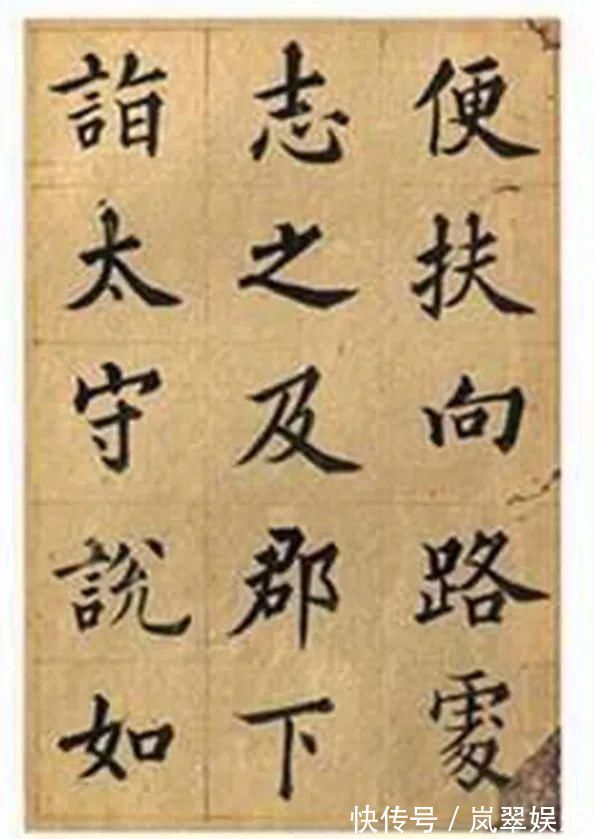 便扶向路處
志之及郡下
詣太守說如
快传号 / 岚翠娱